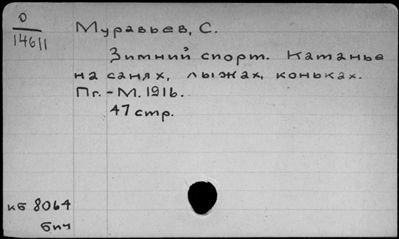 О
14611
Муравьев, С.
Зимний спорт. Катанье
на санях, лыжах, коньках.
Пг.-М. 1916.
47 стр.
кб 8064
бич